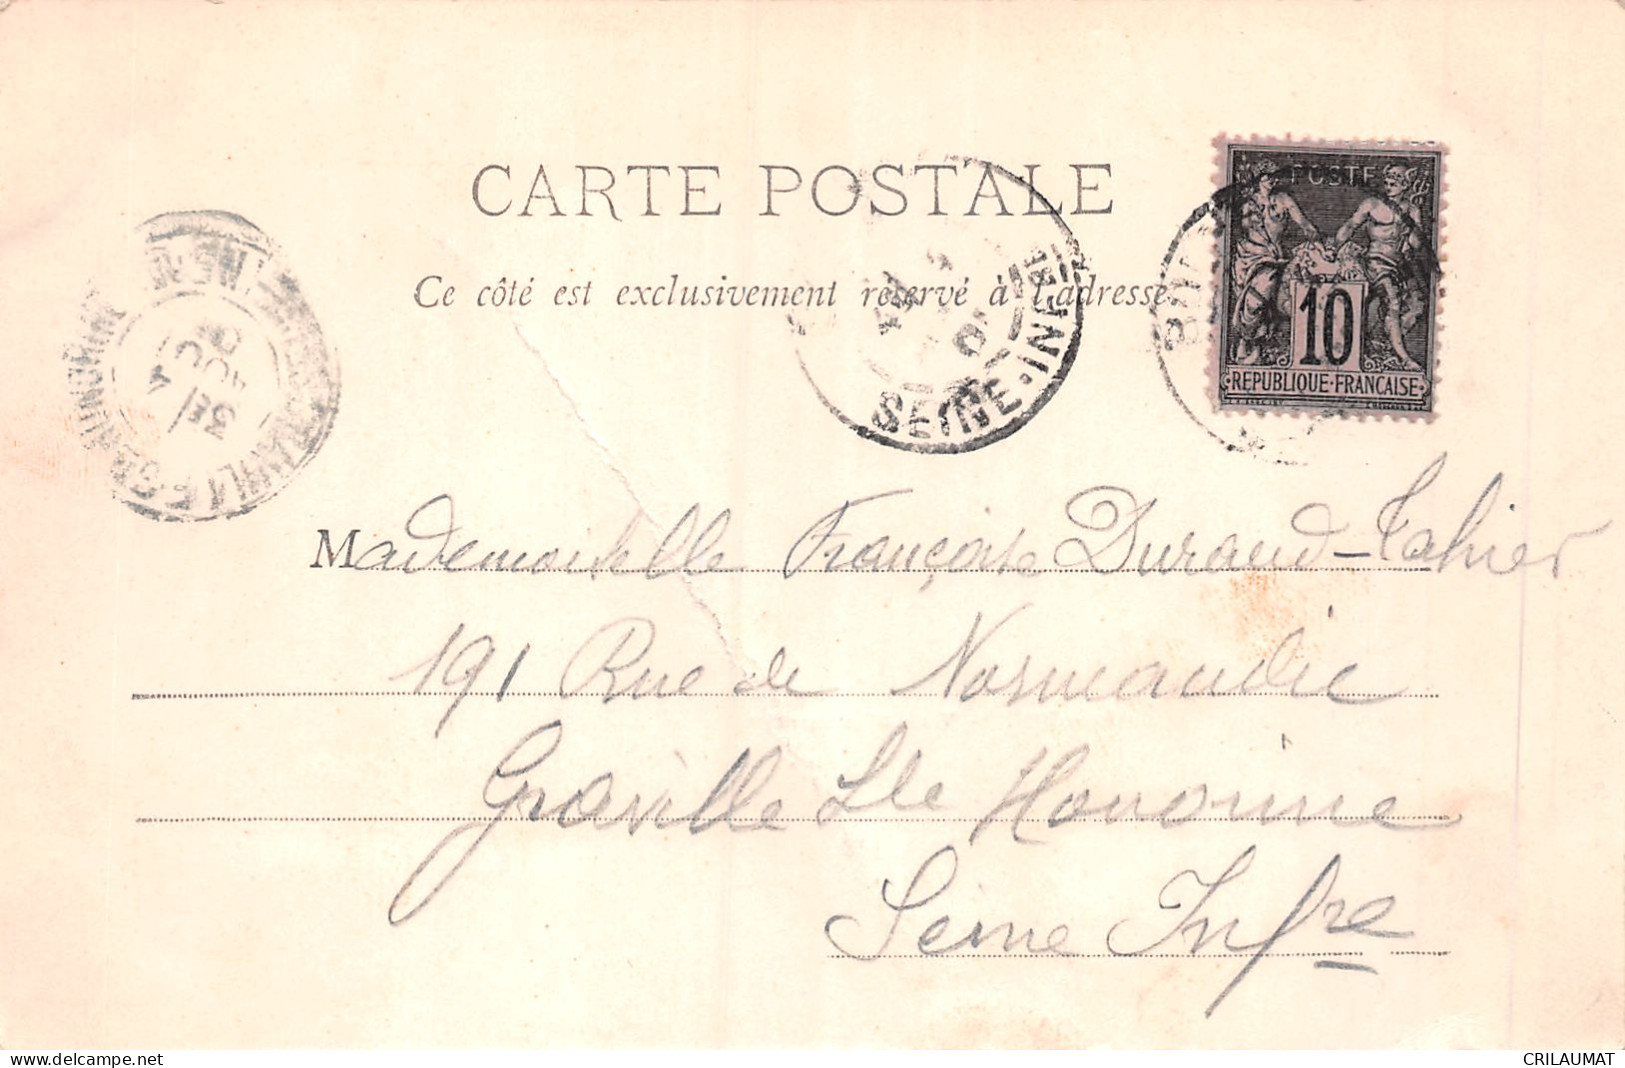 CARTE POSTALE
Ce côté est exclusivement réservé à l'adresse
POSTE
10
REPUBLIQUE·FRANÇAISE
SEINE-INFRE
3E
4
Mademoiselle Françoise Durand-Tahier
191 Rue de Normandie
Graville Ste Honorine
Seine Infre
CRILAUMAT